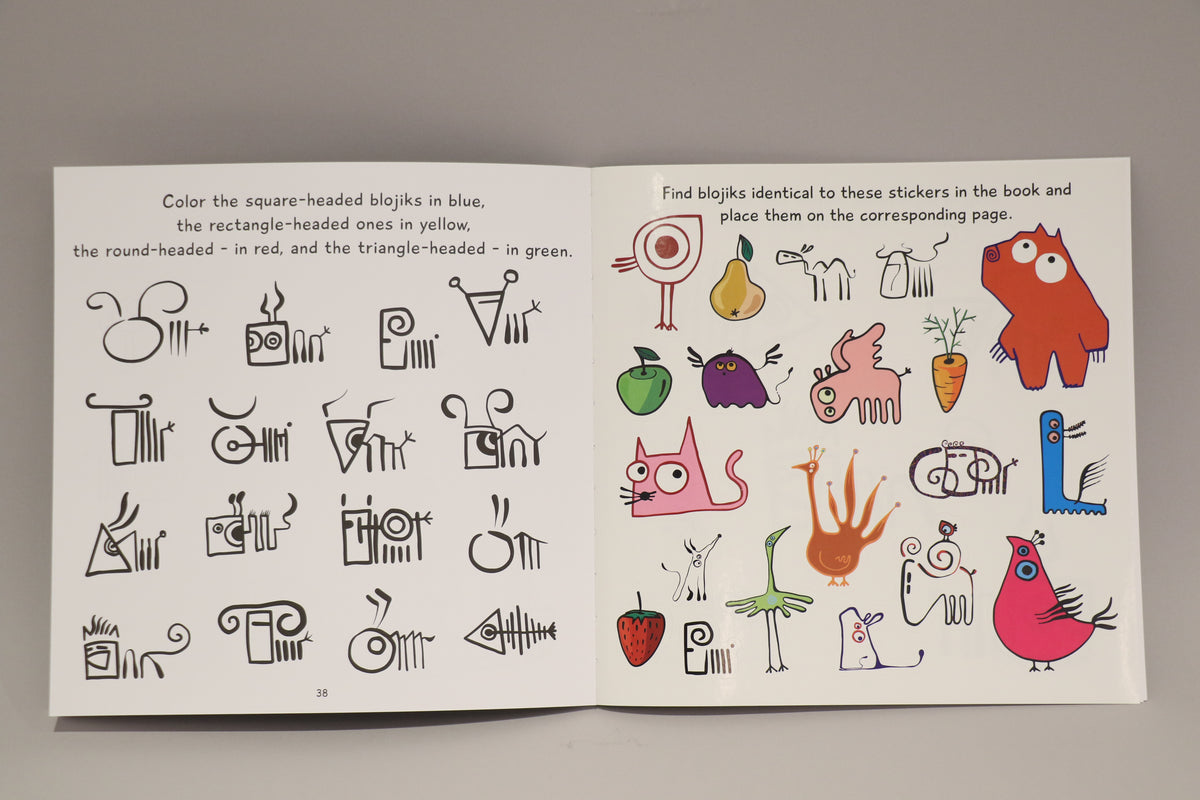 Color the square-headed blojiks in blue,
the rectangle-headed ones in yellow,
the round-headed - in red, and the triangle-headed - in green.
38
Find blojiks identical to these stickers in the book and
place them on the corresponding page.